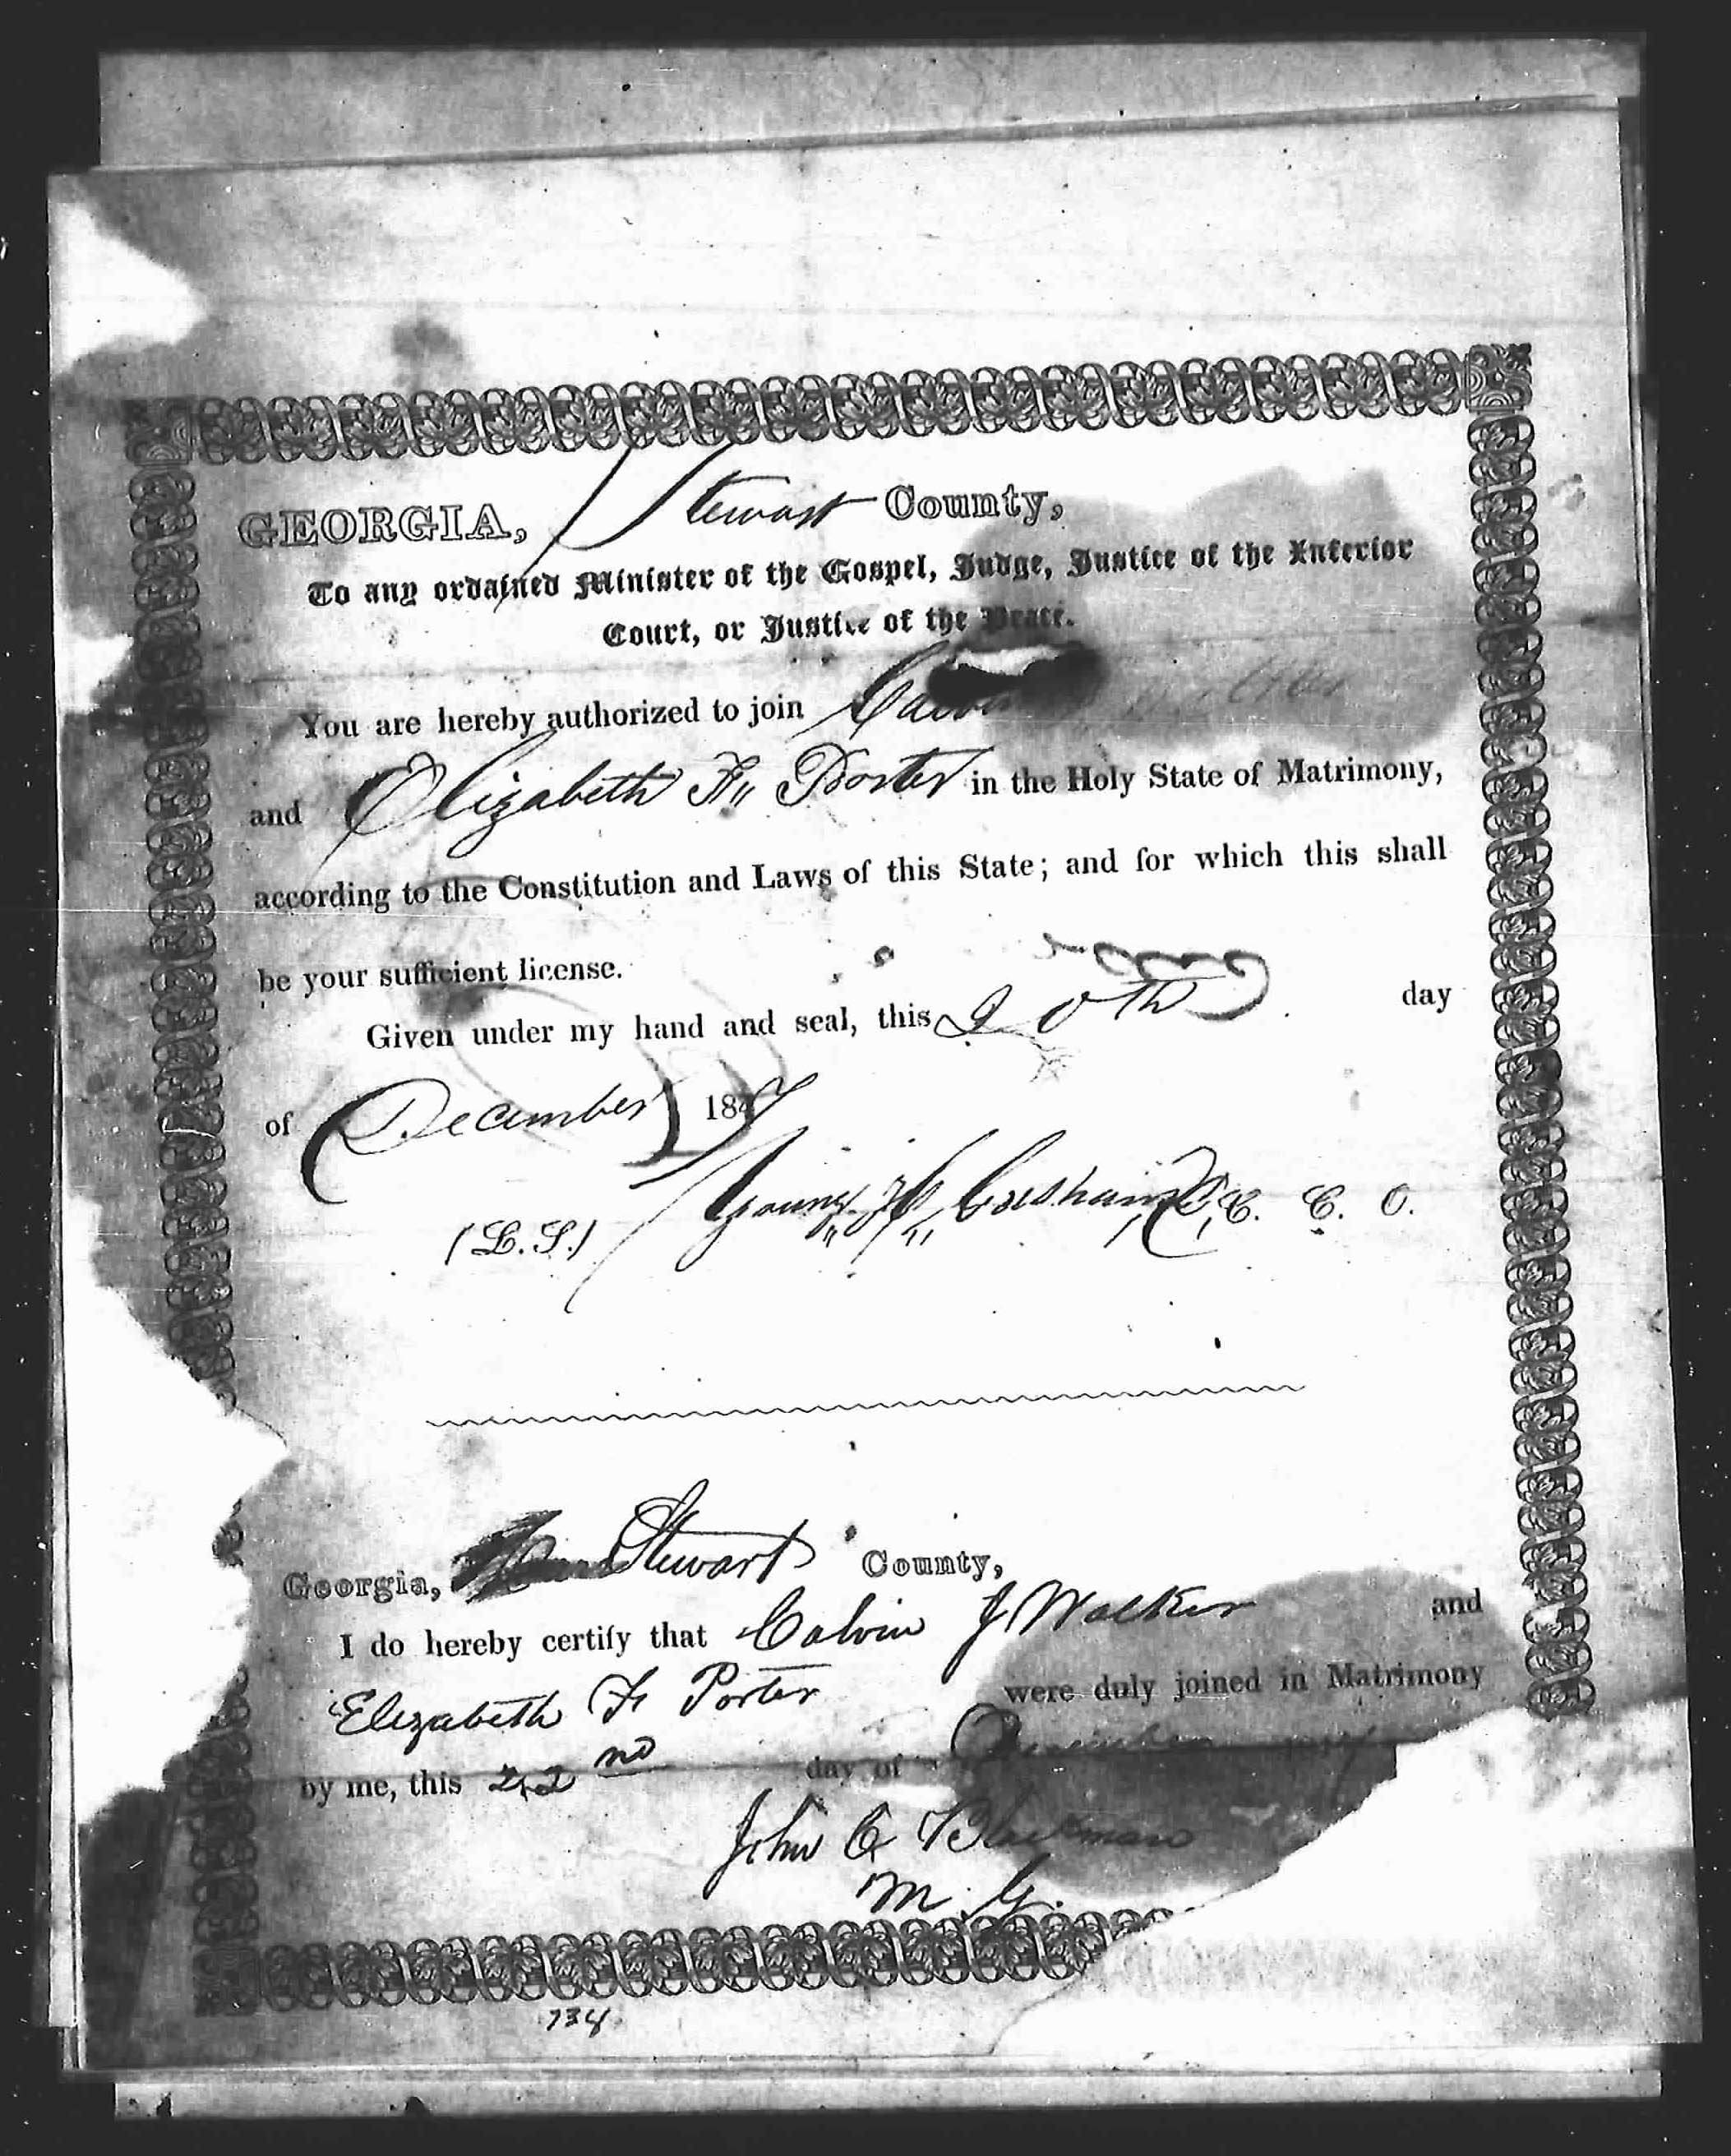 GEORGIA, Stewart County,
To any ordained Minister of the Gospel, Judge, Justice of the Inferior
Court, or Justice of the Peace.
You are hereby authorized to join
and Elizabeth F. Porter in the Holy State of Matrimony,
according to the Constitution and Laws of this State; and for which this shall
be your sufficient license.
Given under my hand and seal, this 20th day
of December 18
(L.S.) Young C. C. O.
Georgia, Stewart County,
I do hereby certify that Calvin J Walker and
Elizabeth F Porter were duly joined in Matrimony
by me, this 22nd day of December
John C Blackman
M. G.
734